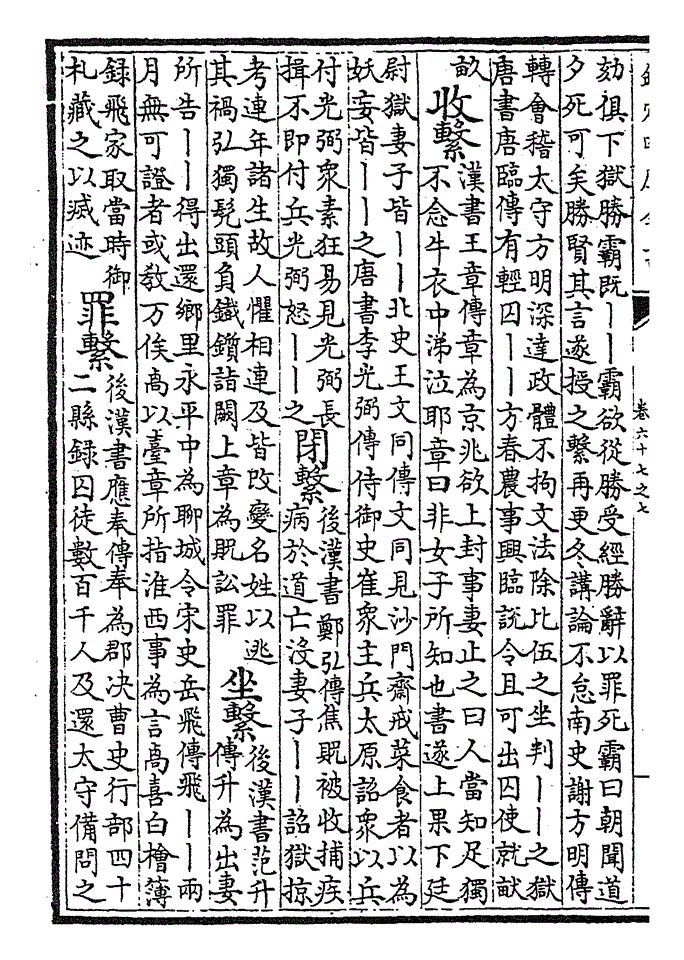 卷六十七之七
劾俱下獄勝霸既丨丨霸欲從勝受經勝辭以罪死霸曰朝聞道
夕死可矣勝賢其言遂授之繫再更冬講論不怠南史謝方明傳
轉會稽太守方明深達政體不拘文法除比伍之坐判丨丨之獄
唐書唐臨傳有輕囚丨丨方春農事興臨説令且可出囚使就畎
畝
收繫
漢書王章傳章為京兆欲上封事妻止之曰人當知足獨
不念牛衣中涕泣耶章曰非女子所知也書遂上果下廷
尉獄妻子皆丨丨北史王文同傳文同見沙門齋戒菜食者以為
妖妄皆丨丨之唐書李光弼傳侍御史崔衆主兵太原詔衆以兵
付光弼衆素狂易見光弼長
揖不即付兵光弼怒丨丨之
閉繫
後漢書鄭弘傳焦貺被收捕疾
病於道亡沒妻子丨丨詔獄掠
考連年諸生故人懼相連及皆改變名姓以逃
其禍弘獨髡頭負鐵鎖詣闕上章為貺訟罪
坐繫
後漢書范升
傳升為出妻
所告丨丨得出還鄉里永平中為聊城令宋史岳飛傳飛丨丨兩
月無可證者或教万俟卨以臺章所指淮西事為言卨喜白檜薄
錄飛家取當時御
札藏之以滅迹
罪繫
後漢書應奉傳奉為郡决曹史行部四十
二縣録囚徒數百千人及還太守備問之